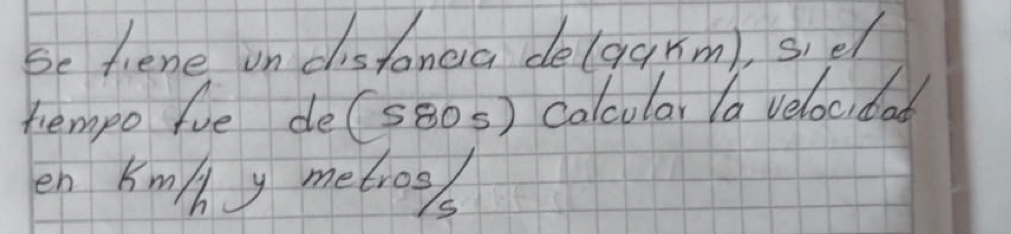 Se tiene un distancia de (99Km), si el
tiempo fue de (580s) calcular la velocidad
en Km/h y metros/s